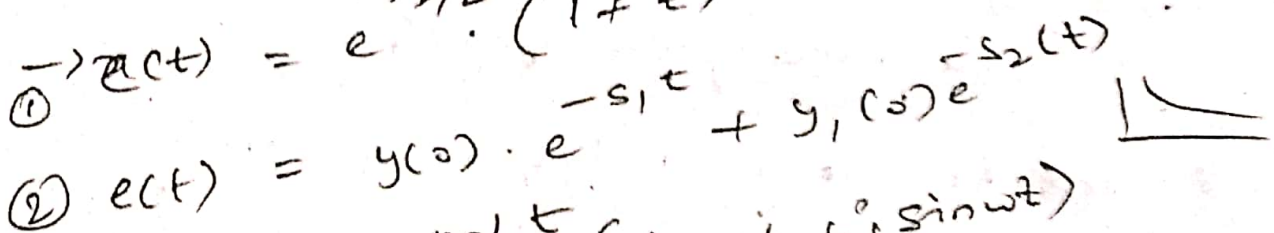 → ① e(t) = e . (1+t)
② e(t) = y(0) . e^{-s₁t} + y₁(0) e^{-s₂(t)}
sinωt)